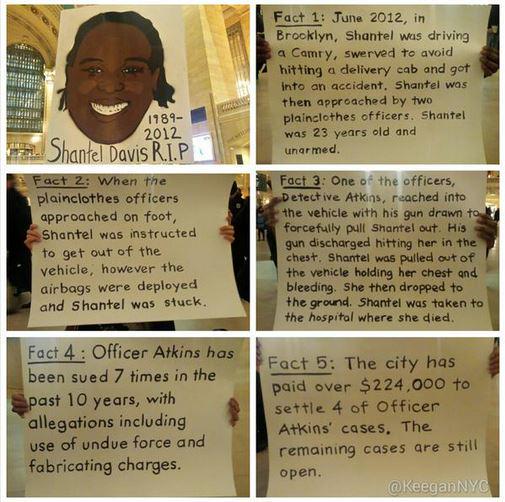 1989-
2012
Shantel Davis R.I.P
Fact 1: June 2012, in
Brooklyn, Shantel was driving
a Camry, swerved to avoid
hitting a delivery cab and got
into an accident. Shantel was
then approached by two
plainclothes officers. Shantel
was 23 years old and
unarmed.
Fact 2: When the
plainclothes officers
approached on foot,
Shantel was instructed
to get out of the
vehicle, however the
airbags were deployed
and Shantel was stuck.
Fact 3: One of the officers,
Detective Atkins, reached into
the vehicle with his gun drawn to
forcefully pull Shantel out. His
gun discharged hitting her in the
chest. Shantel was pulled out of
the vehicle holding her chest and
bleeding. She then dropped to
the ground. Shantel was taken to
the hospital where she died.
Fact 4: Officer Atkins has
been sued 7 times in the
past 10 years, with
allegations including
use of undue force and
fabricating charges.
Fact 5: The city has
paid over $224,000 to
settle 4 of Officer
Atkins' cases. The
remaining cases are still
open.
@KeeganNYC